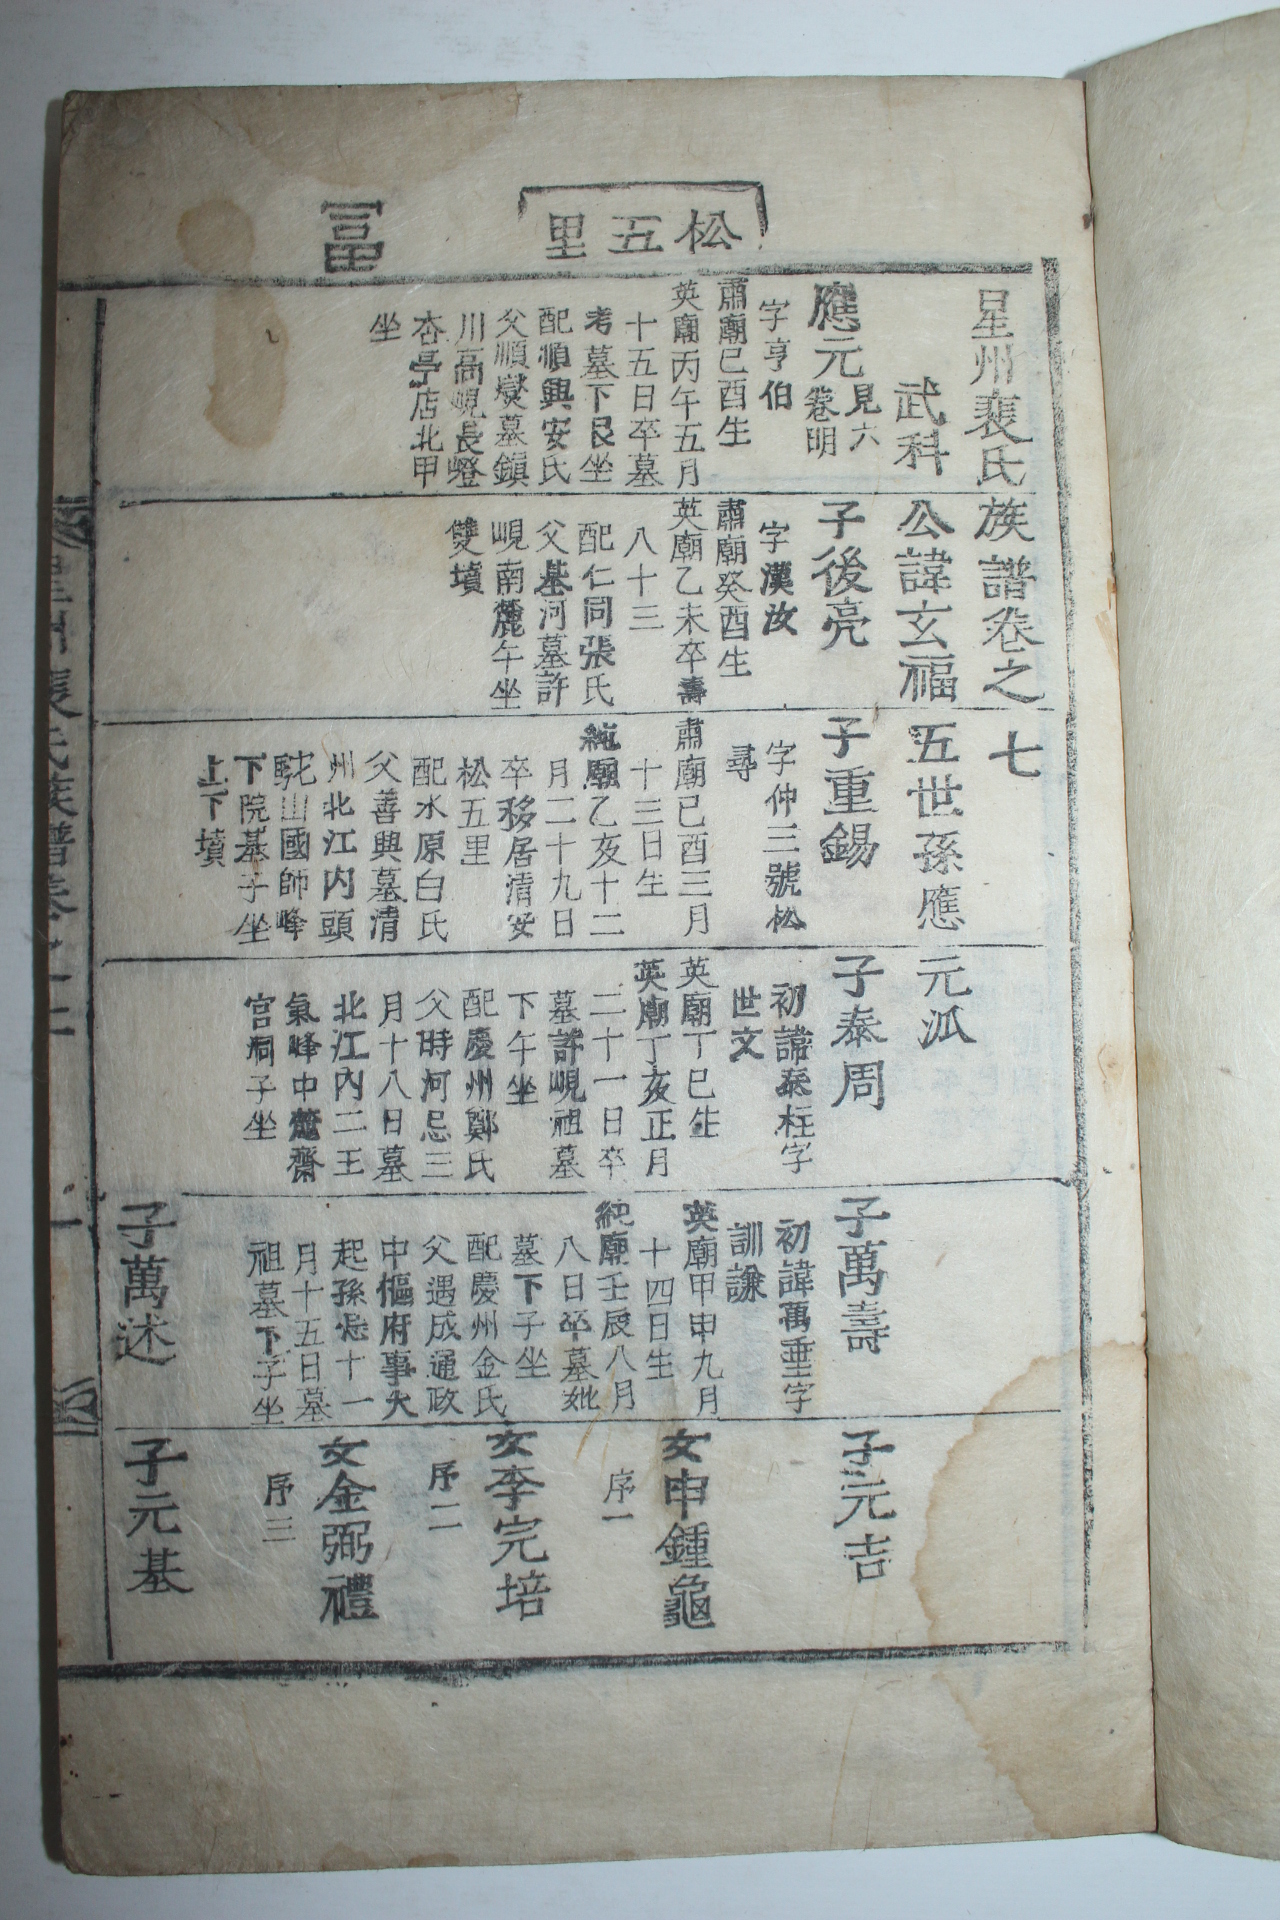 松五里
冨
星州裵氏族譜卷之七
武科公諱玄福五世孫應元派
應元
見六
卷明
字亨伯
肅廟己酉生
英廟丙午五月
十五日卒墓
考墓下艮坐
配順興安氏
父順爕墓鎭
川高峴長嶝
杏亭店北甲
坐
子後亮
字漢汝
肅廟癸酉生
英廟乙未卒壽
八十三
配仁同張氏
父基河墓許
峴南麓午坐
雙墳
子重錫
字仲三號松
尋
肅廟己酉三月
十三日生
純廟乙亥十二
月二十九日
卒移居清安
松五里
配水原白氏
父善興墓清
州北江内頭
駝山國師峰
下院基子坐
上下墳
子泰周
初諱泰柱字
世文
英廟丁巳生
英廟丁亥正月
二十一日卒
墓許峴祖墓
下午坐
配慶州鄭氏
父時河忌三
月十八日墓
北江内二王
氣峰中麓齋
宮洞子坐
子萬壽
初諱萬垂字
訓謙
英廟甲申九月
十四日生
純廟壬辰八月
八日卒墓妣
墓下子坐
配慶州金氏
父遇成通政
中樞府事大
起孫忌十一
月十五日墓
祖墓下子坐
子萬述
子元吉
女申鍾龜
序一
女李完培
序二
女金弼禮
序三
子元基
星州裵氏族譜卷之七
一